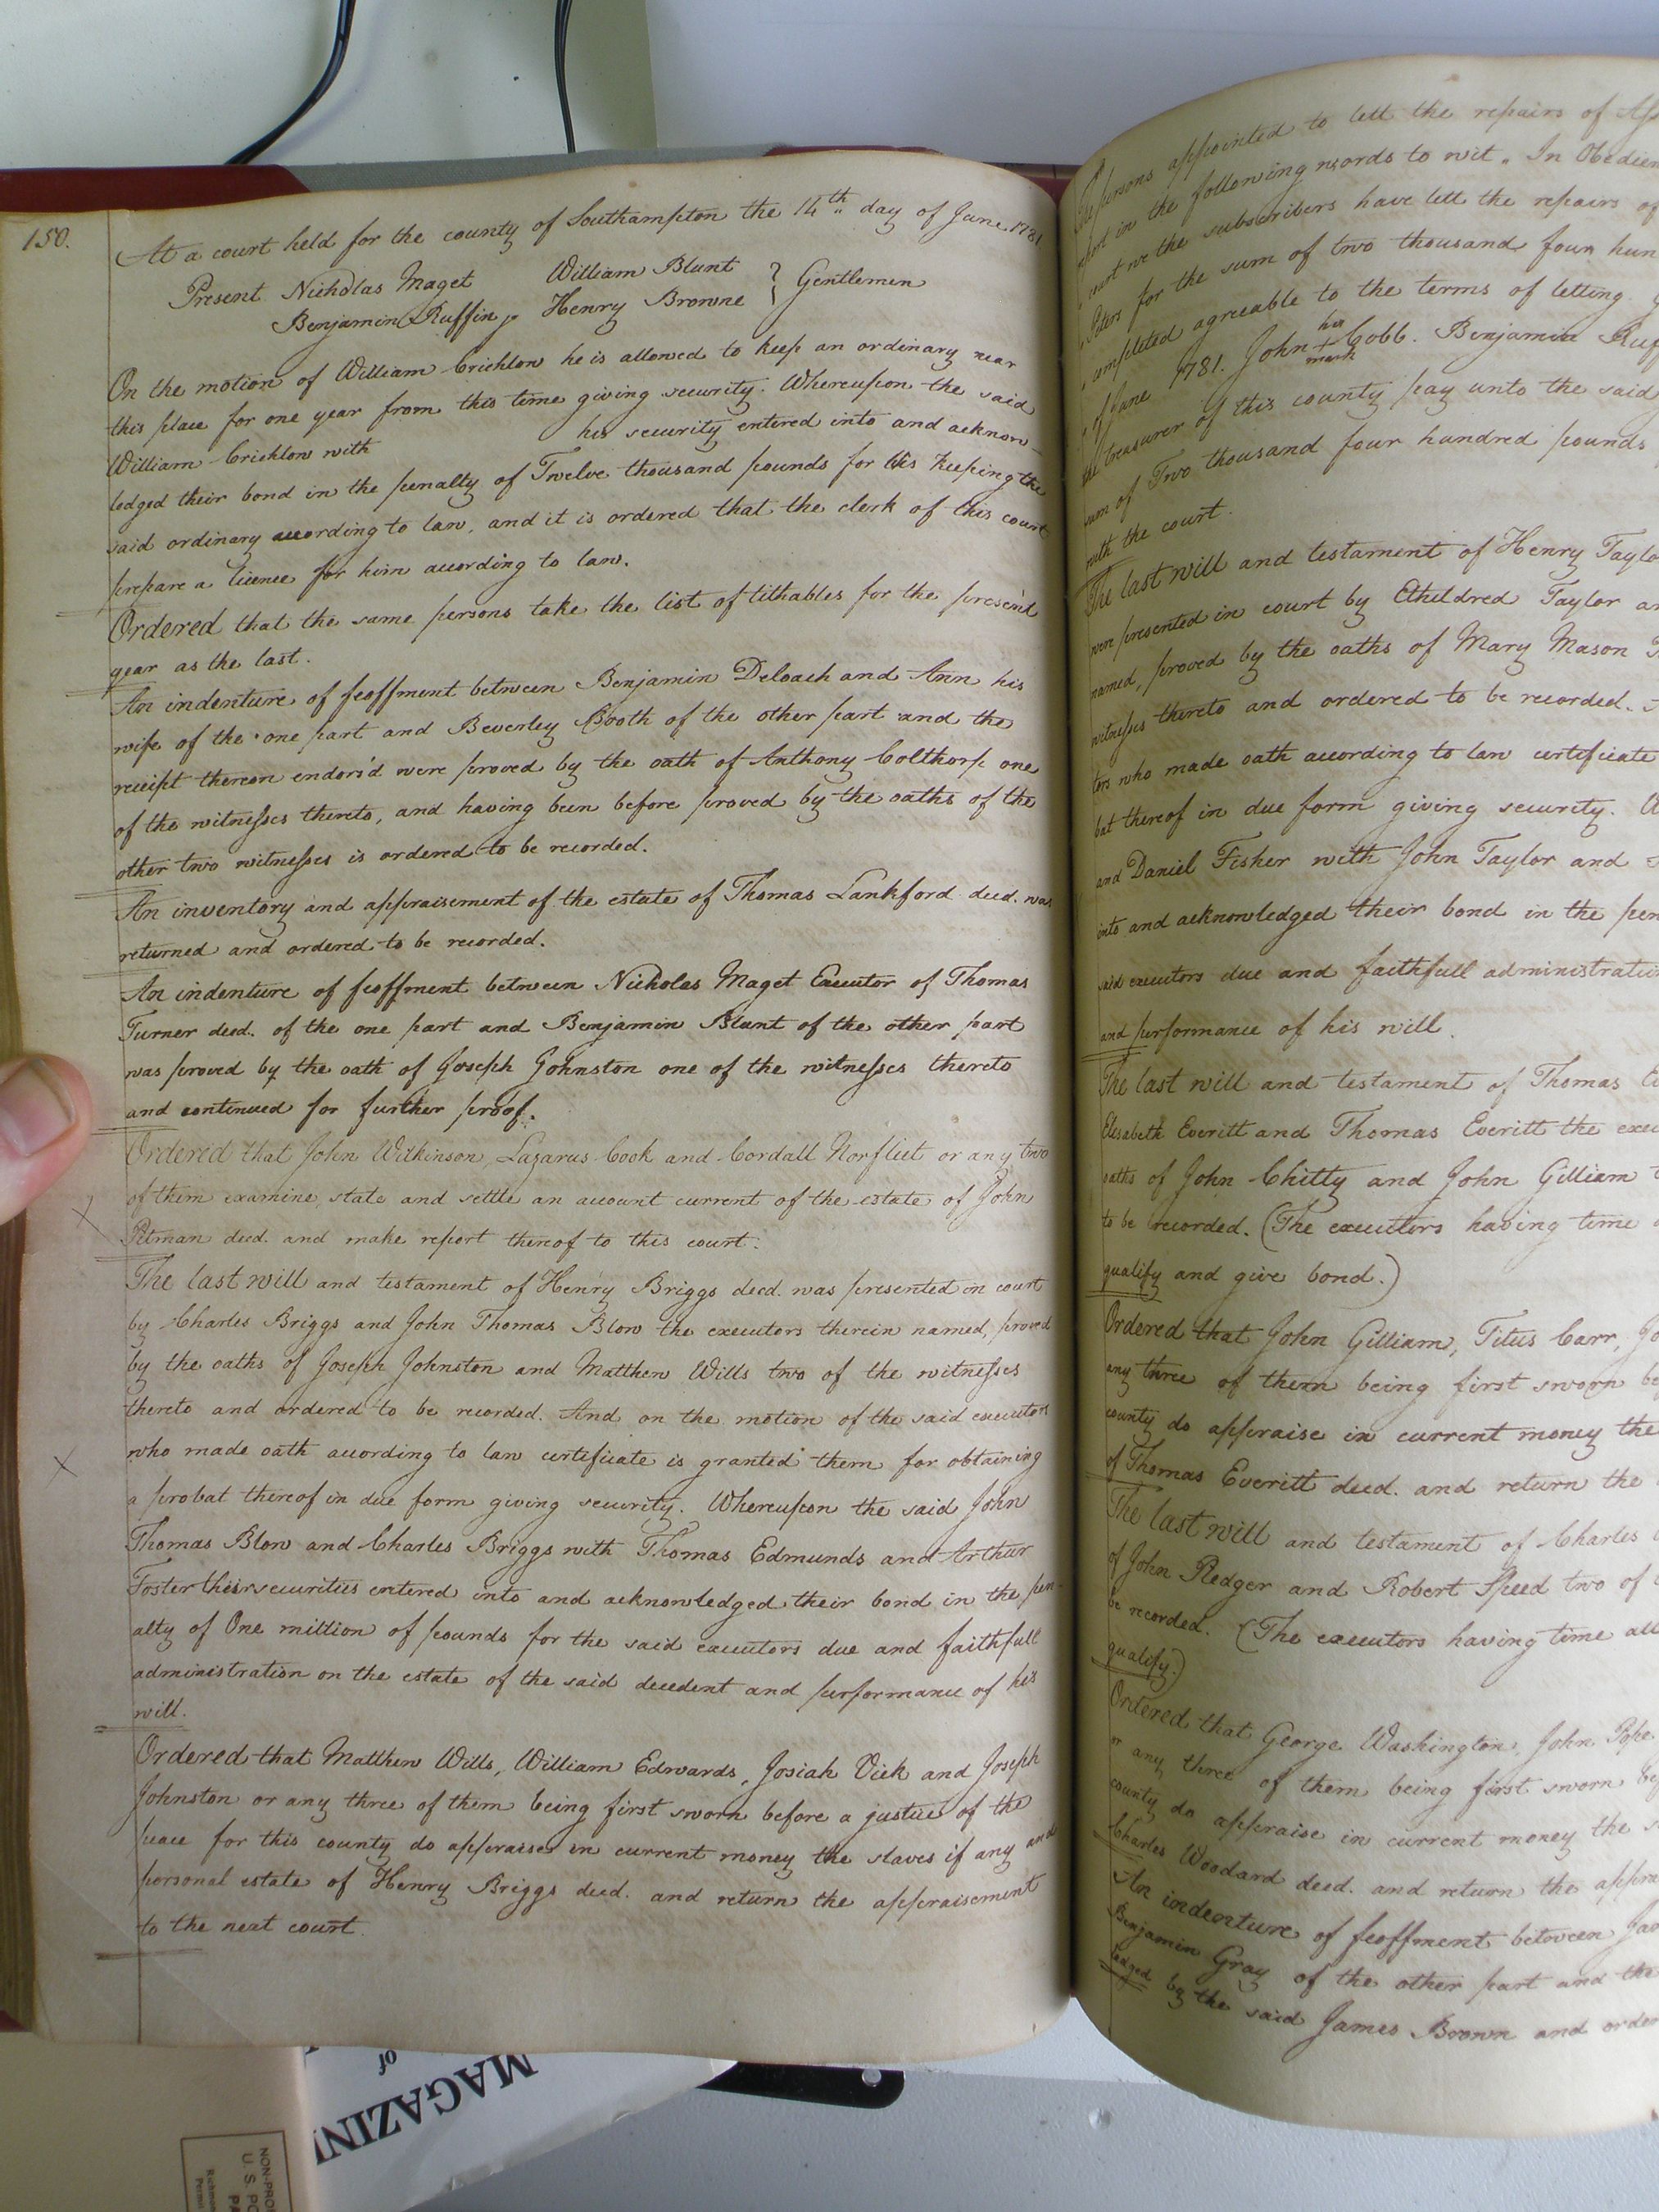 150.
At a court held for the county of Southampton the 14th day of June 1781
Present Nicholas Maget William Blunt } Gentlemen
Benjamin Ruffin jr Henry Browne
On the motion of William Crichlow he is allowed to keep an ordinary near
this place for one year from this time giving security. Whereupon the said
William Crichlow with his security entered into and acknow-
ledged their bond in the penalty of Twelve thousand pounds for his keeping the
said ordinary according to law, and it is ordered that the clerk of this court
prepare a licence for him according to law.
Ordered that the same persons take the list of tithables for the present
year as the last.
An indenture of feoffment between Benjamin Deloach and Ann his
wife of the one part and Beverley Booth of the other part and the
receipt thereon endors'd were proved by the oath of Anthony Colthorp one
of the witnesses thereto, and having been before proved by the oaths of the
other two witnesses is ordered to be recorded.
An inventory and appraisement of the estate of Thomas Lankford decd. was
returned and ordered to be recorded.
An indenture of feoffment between Nicholas Maget Executor of Thomas
Turner decd. of the one part and Benjamin Blunt of the other part
was proved by the oath of Joseph Johnston one of the witnesses thereto
and continued for further proof.
Ordered that John Wilkinson, Lazarus Cook and Cordall Norfleet or any two
of them examine, state and settle an account current of the estate of John
Pitman decd. and make report thereof to this court.
The last will and testament of Henry Briggs decd. was presented in court
by Charles Briggs and John Thomas Blow the executors therein named, proved
by the oaths of Joseph Johnston and Matthew Wills two of the witnesses
thereto and ordered to be recorded. And on the motion of the said executors
who made oath according to law certificate is granted them for obtaining
a probat thereof in due form giving security. Whereupon the said John
Thomas Blow and Charles Briggs with Thomas Edmunds and Arthur
Foster their securities entered into and acknowledged their bond in the pen-
alty of One million of pounds for the said executors due and faithfull
administration on the estate of the said decedent and performance of his
will.
Ordered that Matthew Wills, William Edwards, Josiah Vick and Joseph
Johnston or any three of them being first sworn before a justice of the
peace for this county do appraise in current money the slaves if any and
personal estate of Henry Briggs decd. and return the appraisement
to the next court.
persons appointed to lett the repairs of
in the following words to wit "In
we the subscribers have lett the repairs of
for the sum of two thousand four
agreable to the terms of letting.
June 1781. John his + mark Cobb. Benjamin
treasurer of this county pay unto the said
sum of Two thousand four hundred pounds
the court.
The last will and testament of Henry
were presented in court by Etheldred Taylor
named, proved by the oaths of Mary Mason
witnesses thereto and ordered to be recorded.
who made oath according to law certificate
thereof in due form giving security.
and Daniel Fisher with John Taylor and
into and acknowledged their bond in the
said executors due and faithfull
and performance of his will.
The last will and testament of Thomas
Elisabeth Everitt and Thomas Everitt the
oaths of John Chitty and John Gilliam
to be recorded. (The executors having time
qualify and give bond.)
Ordered that John Gilliam, Titus Carr,
any three of them being first sworn
county do appraise in current money the
of Thomas Everitt decd. and return the
The last will and testament of Charles
of John Pledger and Robert Speed two of
be recorded. (The executors having time
qualify.)
Ordered that George Washington, John Pope
or any three of them being first sworn
county do appraise in current money the
Charles Woodard decd. and return the
An indenture of feoffment between
Benjamin Gray of the other part and the
by the said James Brown and
of
MAGAZIN